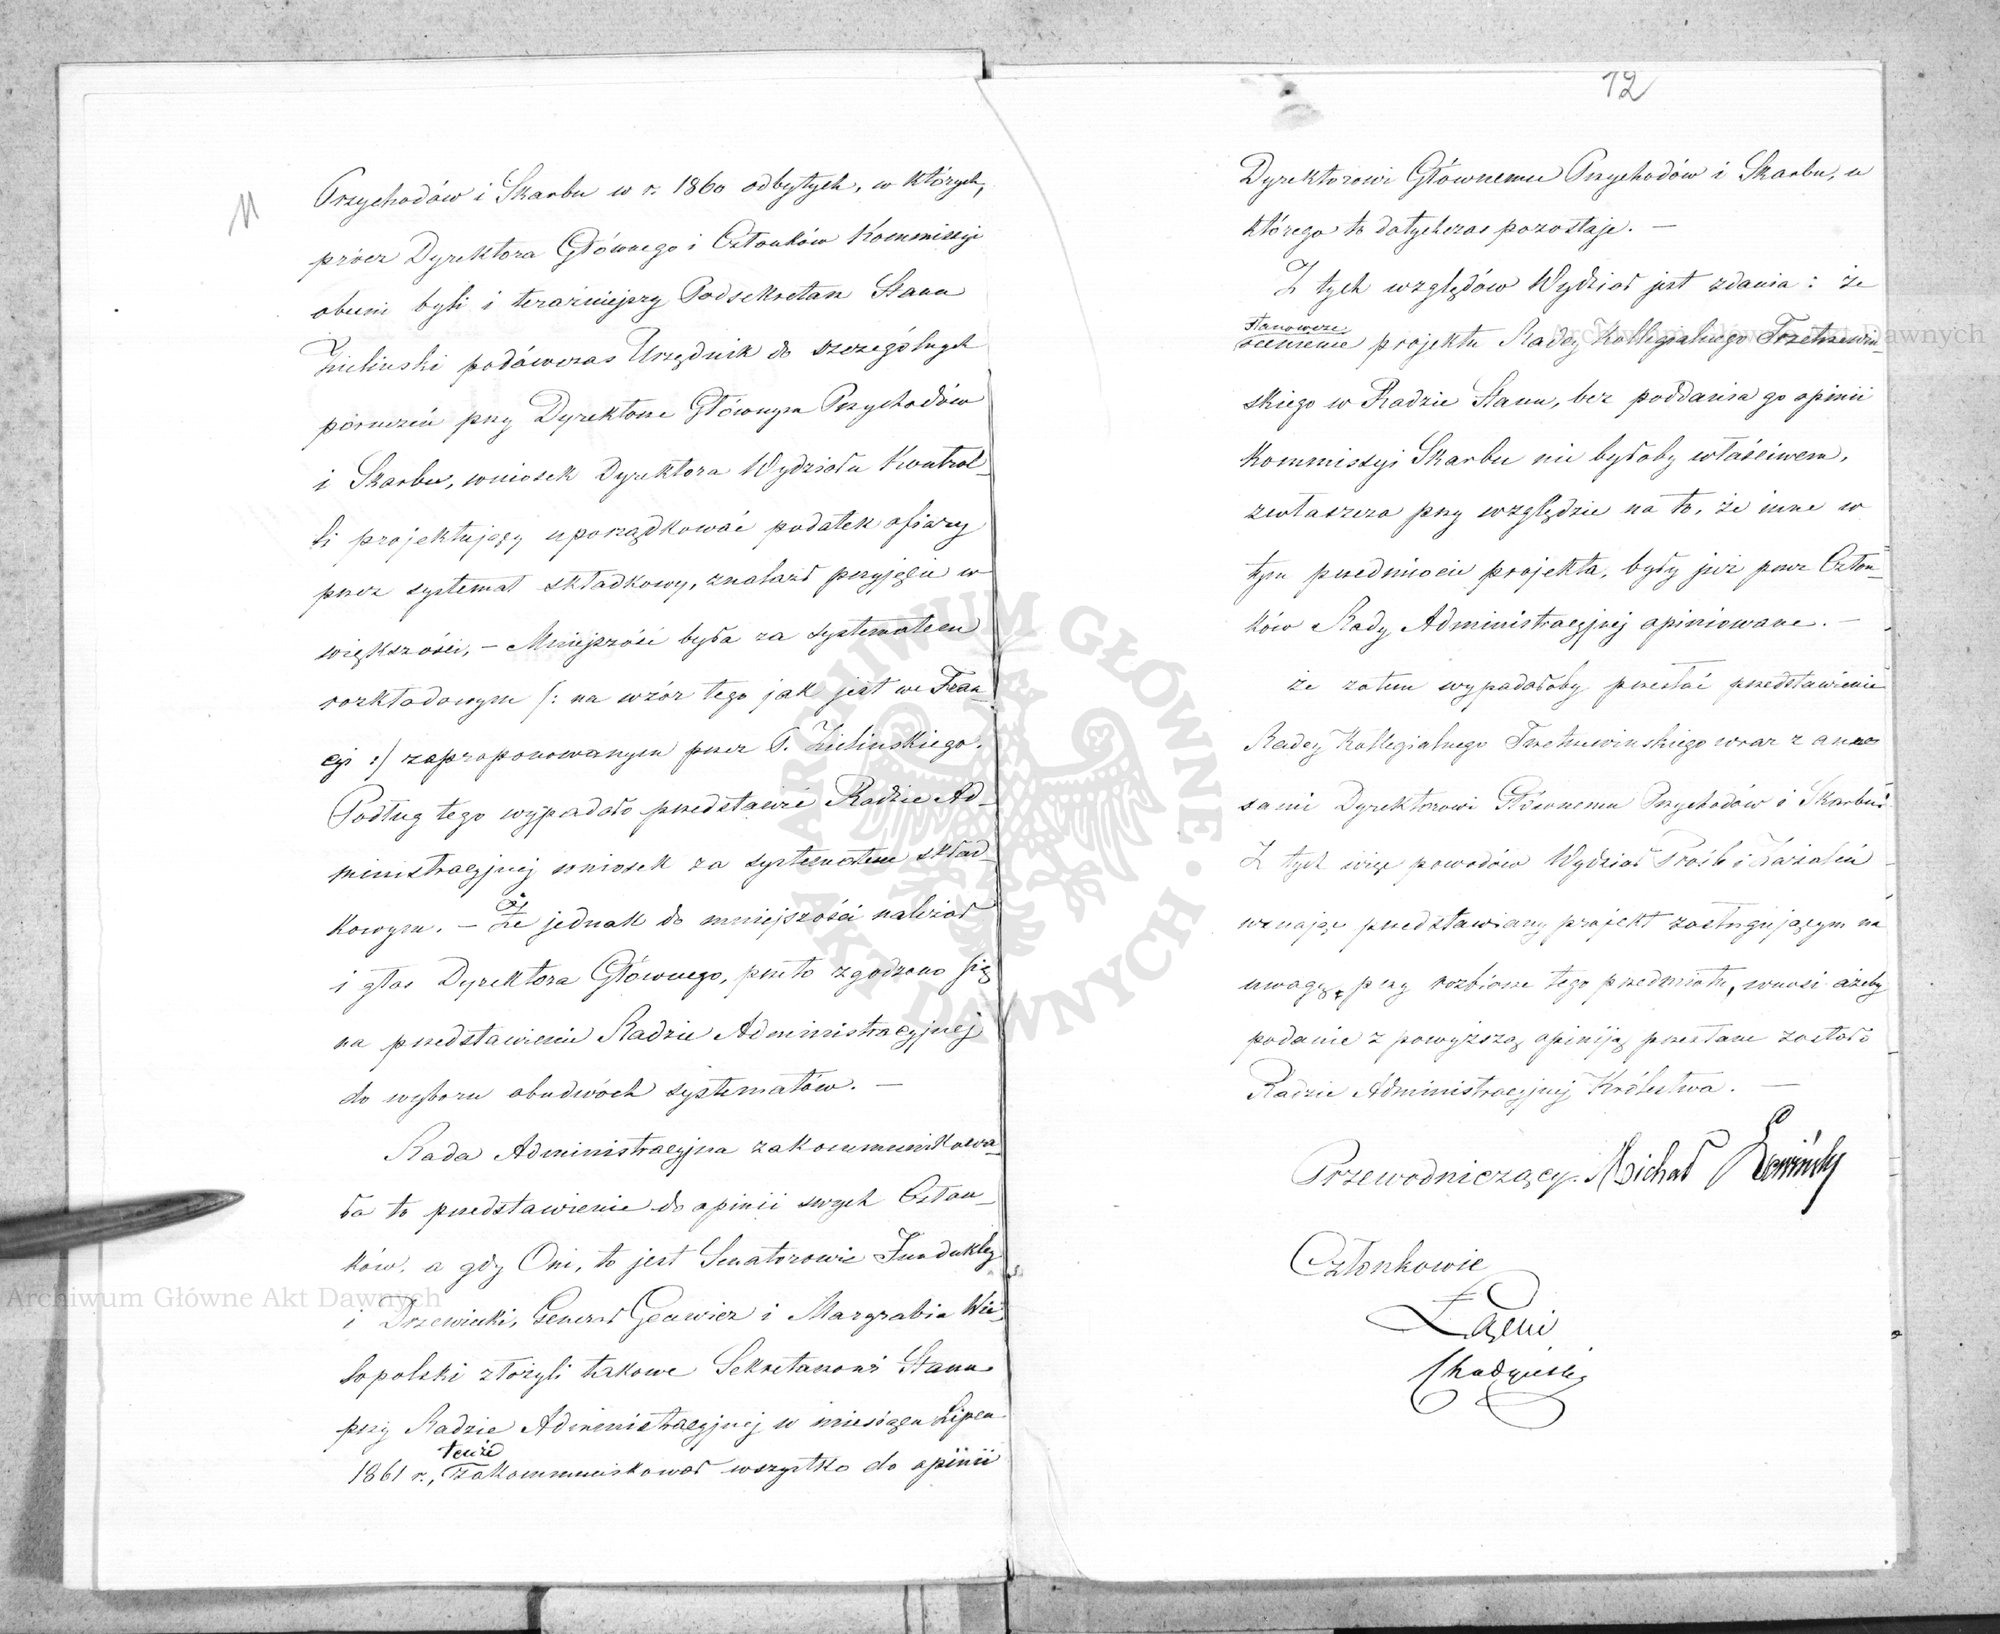 11
Przychodów i Skarbu w r. 1860 odbytych, w których,
prócz Dyrektora Głównego i Członków Kommissyi
obecni byli i teraźniejszy Podsekretarz Stanu
Zieliński podówczas Urzędnik do szczególnych
poruczeń przy Dyrektorze Głównym Przychodów
i Skarbu, wniosek Dyrektora Wydziału Kontrol-
li projektujący uporządkować podatek ofiary
przez systemat składkowy, znalazł przyjęcie w
większości, – Mniejszość była za systematem
rozkładowym /: na wzór tego jak jest we Fran
cyi :/ zaproponowanym przez P. Zielińskiego.
Podług tego wypadało przedstawić Radzie Ad-
ministracyjnej wniosek za systematem skład-
kowym. – Że jednak do mniejszości należał
i głos Dyrektora Głównego, przeto zgodzono się
na przedstawienie Radzie Administracyjnej
do wyboru obudwóch systematów. –
Rada Administracyjna zakommunikowa-
ła to przedstawienie do opinii swych Człon-
ków, a gdy Oni, to jest Senatorowie Funduklej
i Drzewiecki, Generał Gecewicz i Margrabia Wie-
lopolski złożyli takowe Sekretarzowi Stanu
przy Radzie Administracyjnej w miesiącu Lipcu
1861 r., tenże zakommunikował wszystko do opinii
12
Dyrektorowi Głównemu Przychodów i Skarbu, u
którego to dotychczas pozostaje. –
Z tych względów Wydział jest zdania: że
stanowcze
ocenienie projektu Radcy Kollegialnego Trzetrzewiń-
skiego w Radzie Stanu, bez poddania go opinii
Kommissyi Skarbu nie byłoby właściwem,
zwłaszcza przy względzie na to, że inne w
tym przedmiocie projekta, były już przez Człon-
ków Rady Administracyjnej opiniowane. –
że zatem wypadałoby przesłać przedstawienie
Radcy Kollegialnego Trzetrzewińskiego wraz z anne
sami Dyrektorowi Głównemu Przychodów i Skarbu.
Z tych więc powodów Wydział Próśb i Zażaleń
uznając przedstawiany projekt zasługującym na
uwagę, przy rozbiorze tego przedmiotu, wnosi ażeby
podanie z powyższą opiniją przesłane zostało
Radzie Administracyjnej Królestwa. –
Przewodniczący. Michał
Członkowie
Łącki
Archiwum Główne Akt Dawnych
Archiwum Główne Akt Dawnych
ARCHIWUM GŁÓWNE AKT DAWNYCH